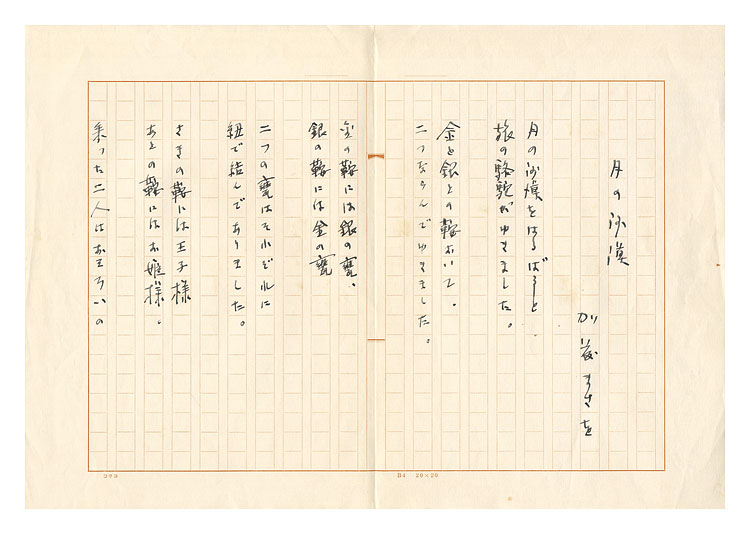 月の沙漠
加藤まさを
月の沙漠をはるばると
旅の駱駝がゆきました。
金と銀との鞍おいて、
二つならんでゆきました。
金の鞍には銀の甕、
銀の鞍には金の甕
二つの甕はそれぞれに
紐で結んでありました。
さきの鞍には王子様
あとの鞍にはお姫様、
乗った二人はおそろいの
コクヨ
B4 20×20